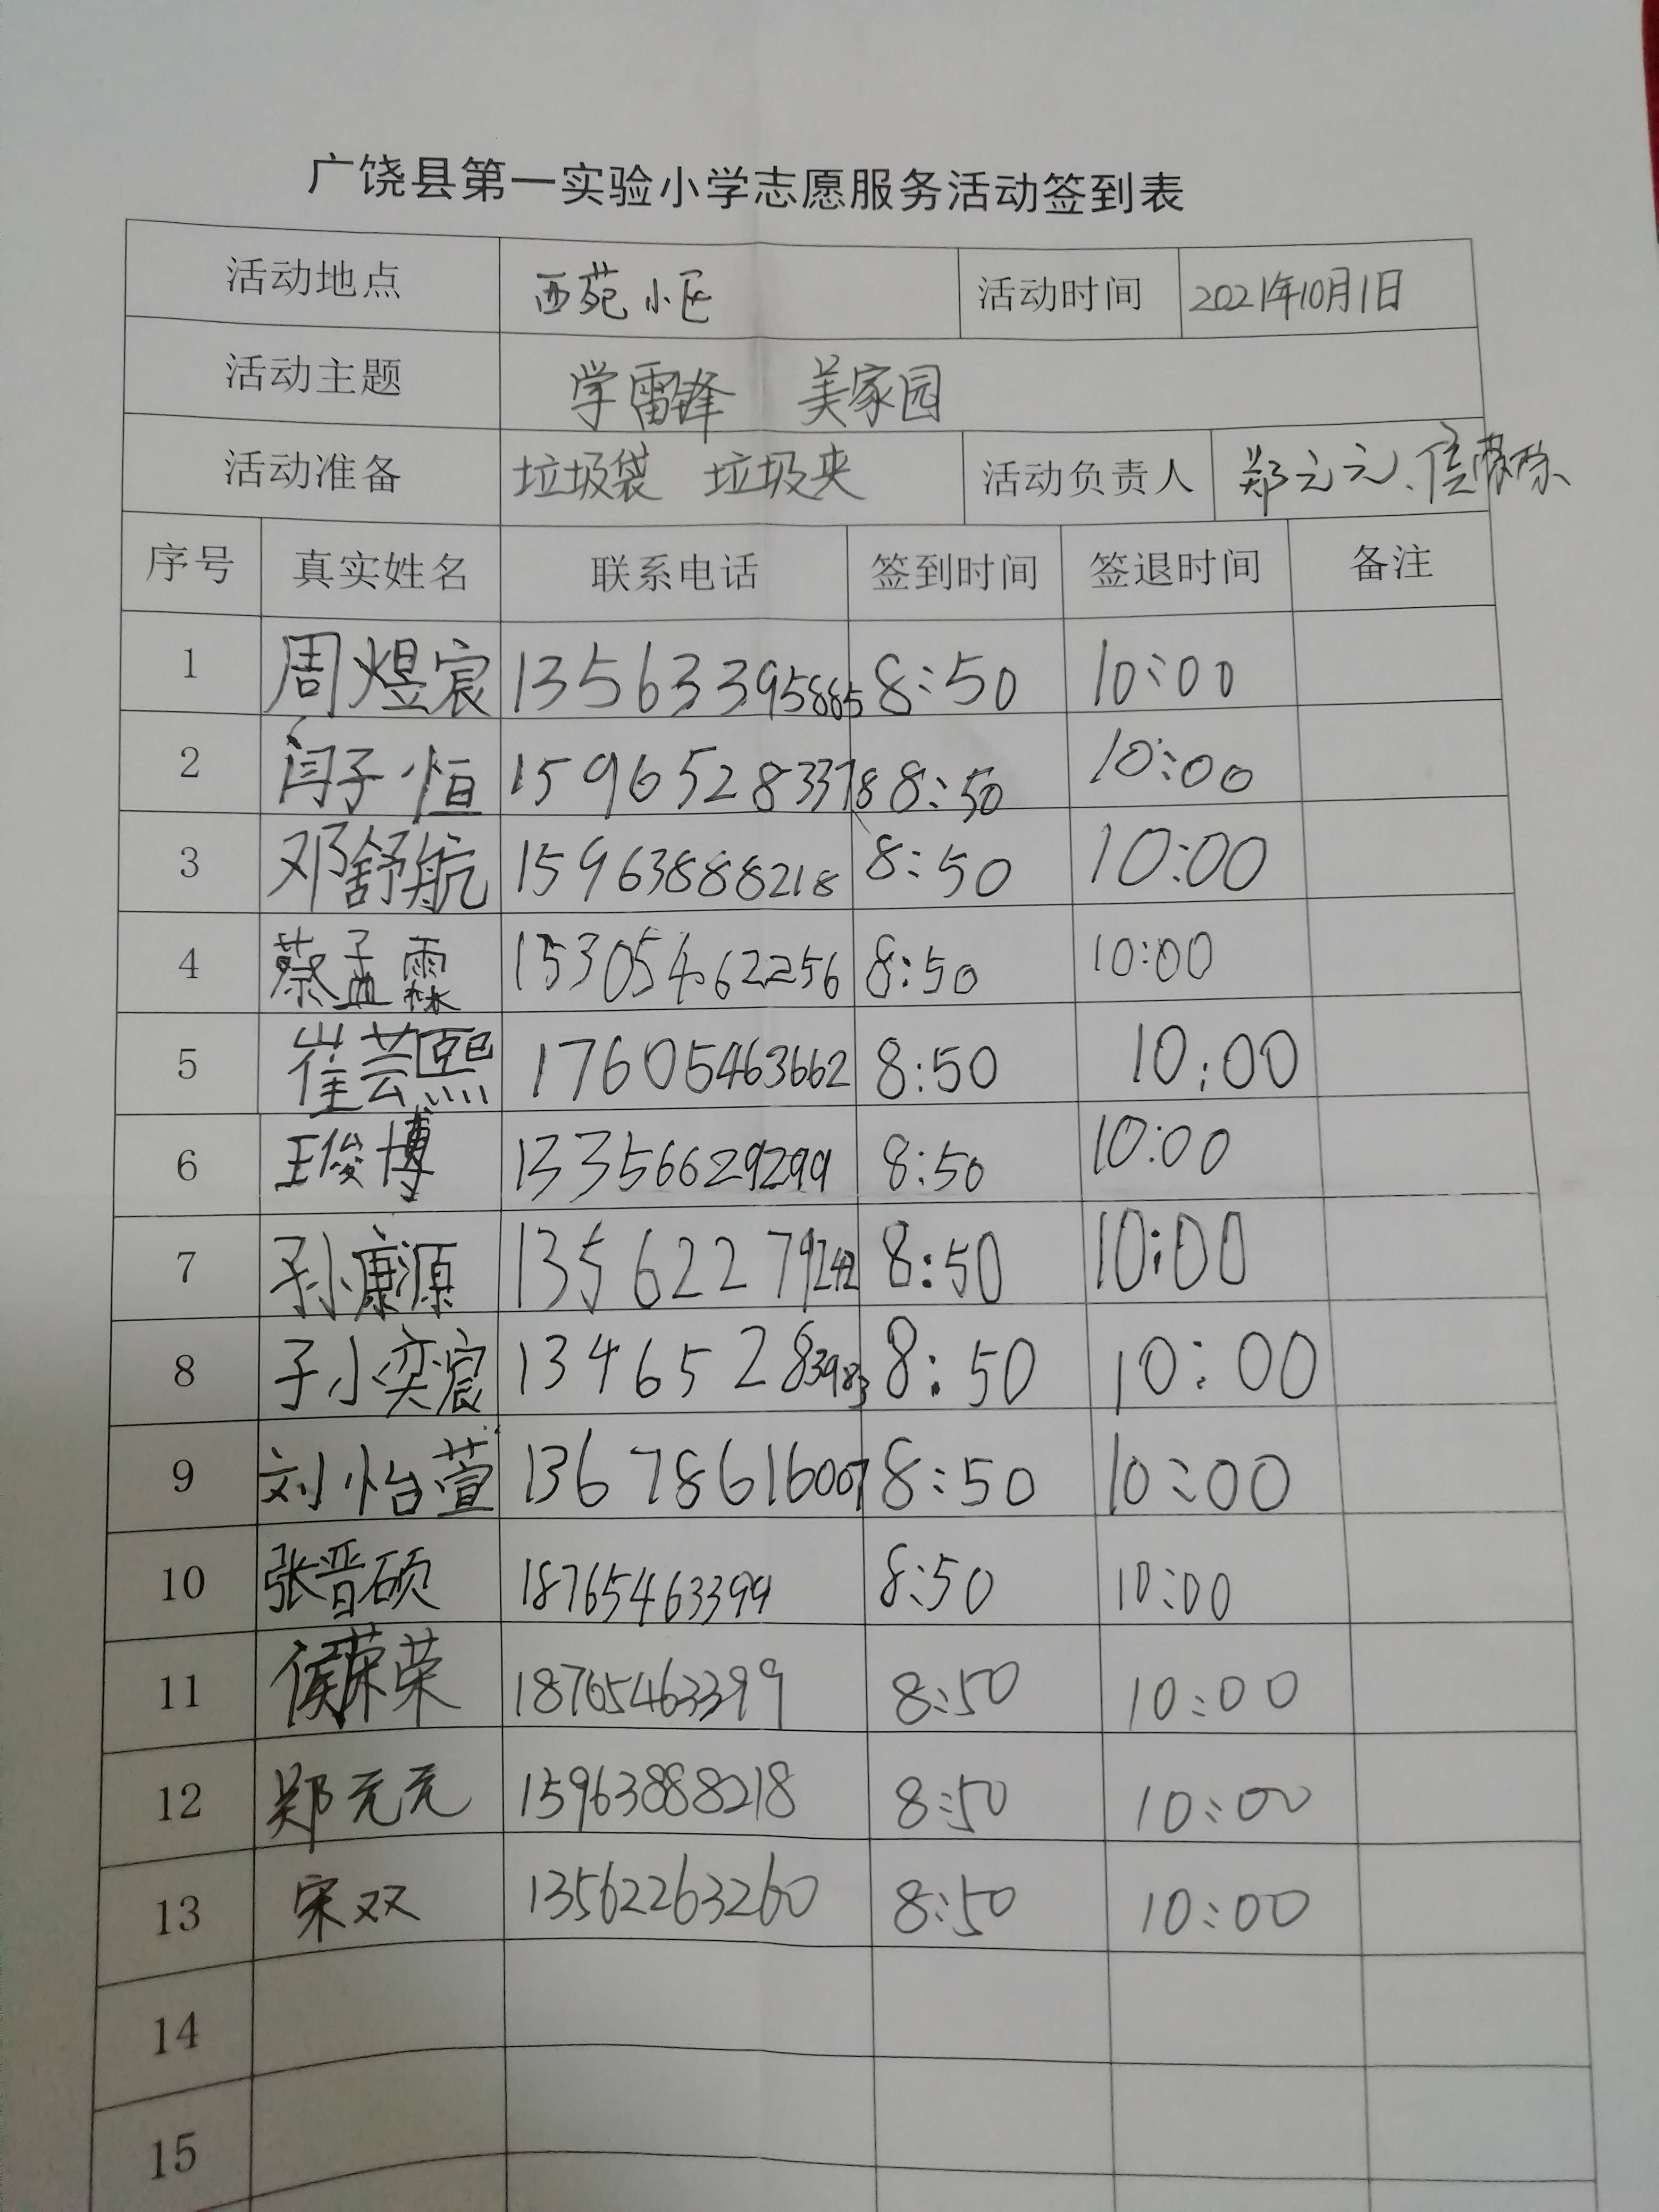 广饶县第一实验小学志愿服务活动签到表
活动地点 西苑小区 活动时间 2021年10月1日
活动主题 学雷锋 美家园
活动准备 垃圾袋 垃圾夹 活动负责人 郑元元、
序号 真实姓名 联系电话 签到时间 签退时间 备注
1 周煜宸 13563395885 8:50 10:00
2 闫子恒 15965283378 8:50 10:00
3 邓舒航 15963888218 8:50 10:00
4 蔡孟霖 15305462256 8:50 10:00
5 崔芸熙 17605463662 8:50 10:00
6 王俊博 13356629299 8:50 10:00
7 孙康源 13562279242 8:50 10:00
8 孙奕宸 13465283983 8:50 10:00
9 刘怡萱 13678616007 8:50 10:00
10 张晋硕 18765463399 8:50 10:00
11 荣 18765463399 8:50 10:00
12 郑元元 15963888218 8:50 10:00
13 宋双 13562263260 8:50 10:00
14
15